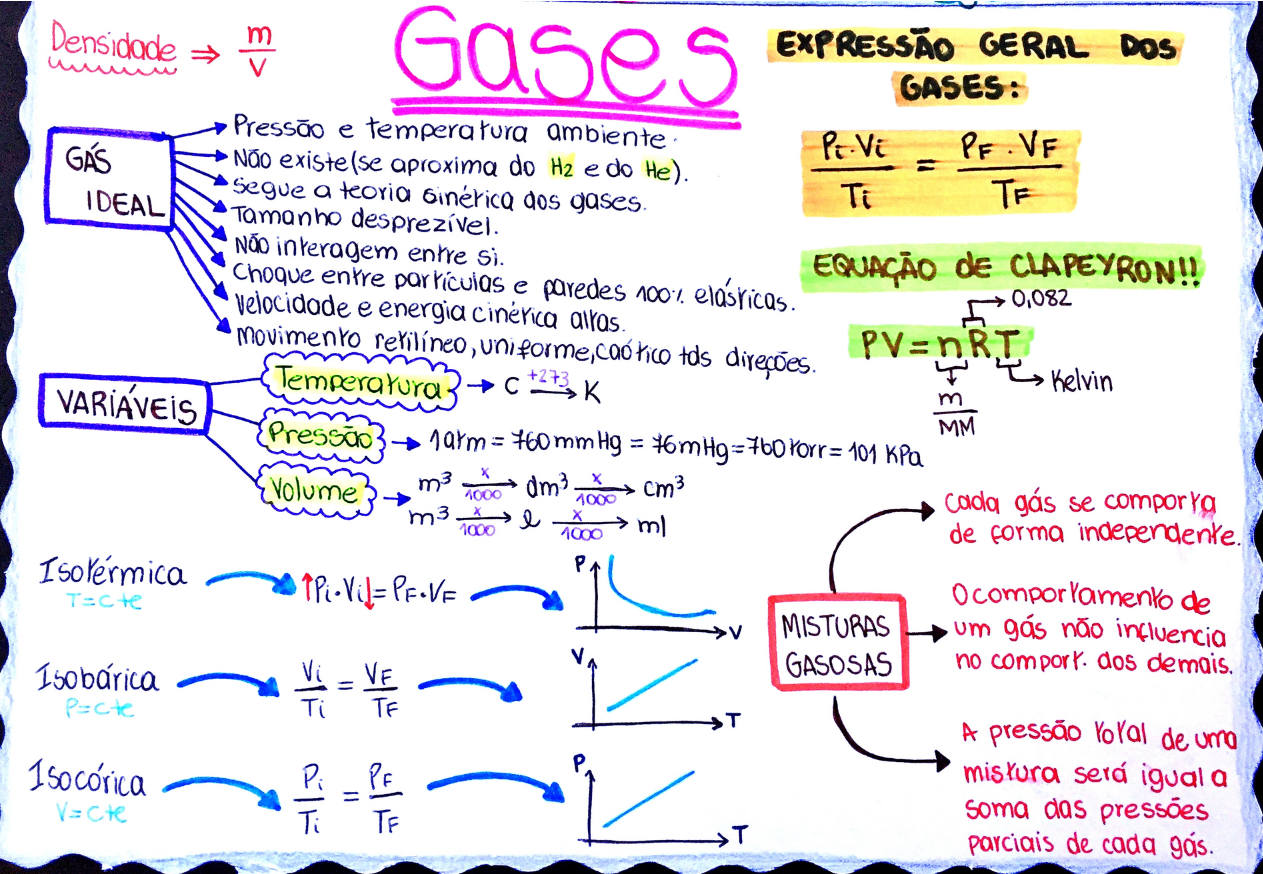 Densidade ⇒ m/V
Gases
EXPRESSÃO GERAL DOS
GASES:
Pi.Vi/Ti = PF.VF/TF
GÁS
IDEAL
Pressão e temperatura ambiente.
Não existe (se aproxima do H2 e do He).
Segue a teoria sinérica dos gases.
Tamanho desprezível.
Não interagem entre si.
Choque entre partículas e paredes 100% elásticas.
Velocidade e energia cinérica altas.
Movimento retilíneo, uniforme, caótico tds direções.
EQUAÇÃO de CLAPEYRON!!
0,082
PV=nRT
Kelvin
m/MM
VARIÁVEIS
Temperatura → C +273 → K
Pressão → 1 atm = 760 mmHg = 76mHg = 760 torr = 101 KPa
Volume → m³ x/1000 → dm³ x/1000 → cm³
m³ x/1000 → l x/1000 → ml
Isotérmica
T=cte
↑Pi.Vi↓=PF.VF
P
V
Isobárica
P=cte
Vi/Ti = VF/TF
V
T
Isocórica
V=cte
Pi/Ti = PF/TF
P
T
MISTURAS
GASOSAS
Cada gás se comporta
de forma independente.
O comportamento de
um gás não influencia
no comport. dos demais.
A pressão total de uma
mistura será igual a
soma das pressões
parciais de cada gás.